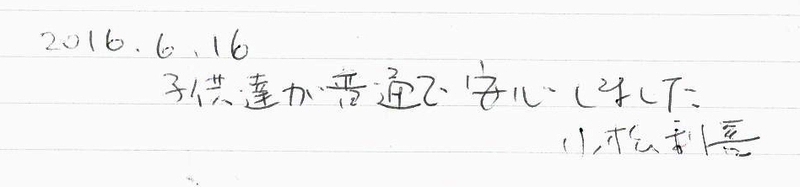 2016.6.16
子供達が普通で安心しました
小松利喜